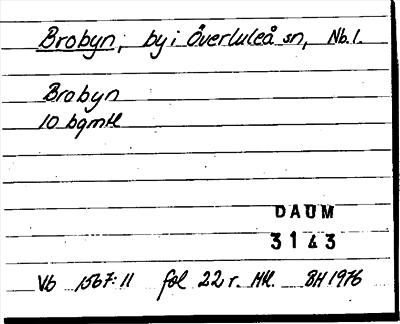 Brobyn, by i Överluleå sn, Nb.l.
Brobyn
10 bgmtl
DAUM
3143
Vb 1567:11 fol 22 r. Mtl. BH 1976